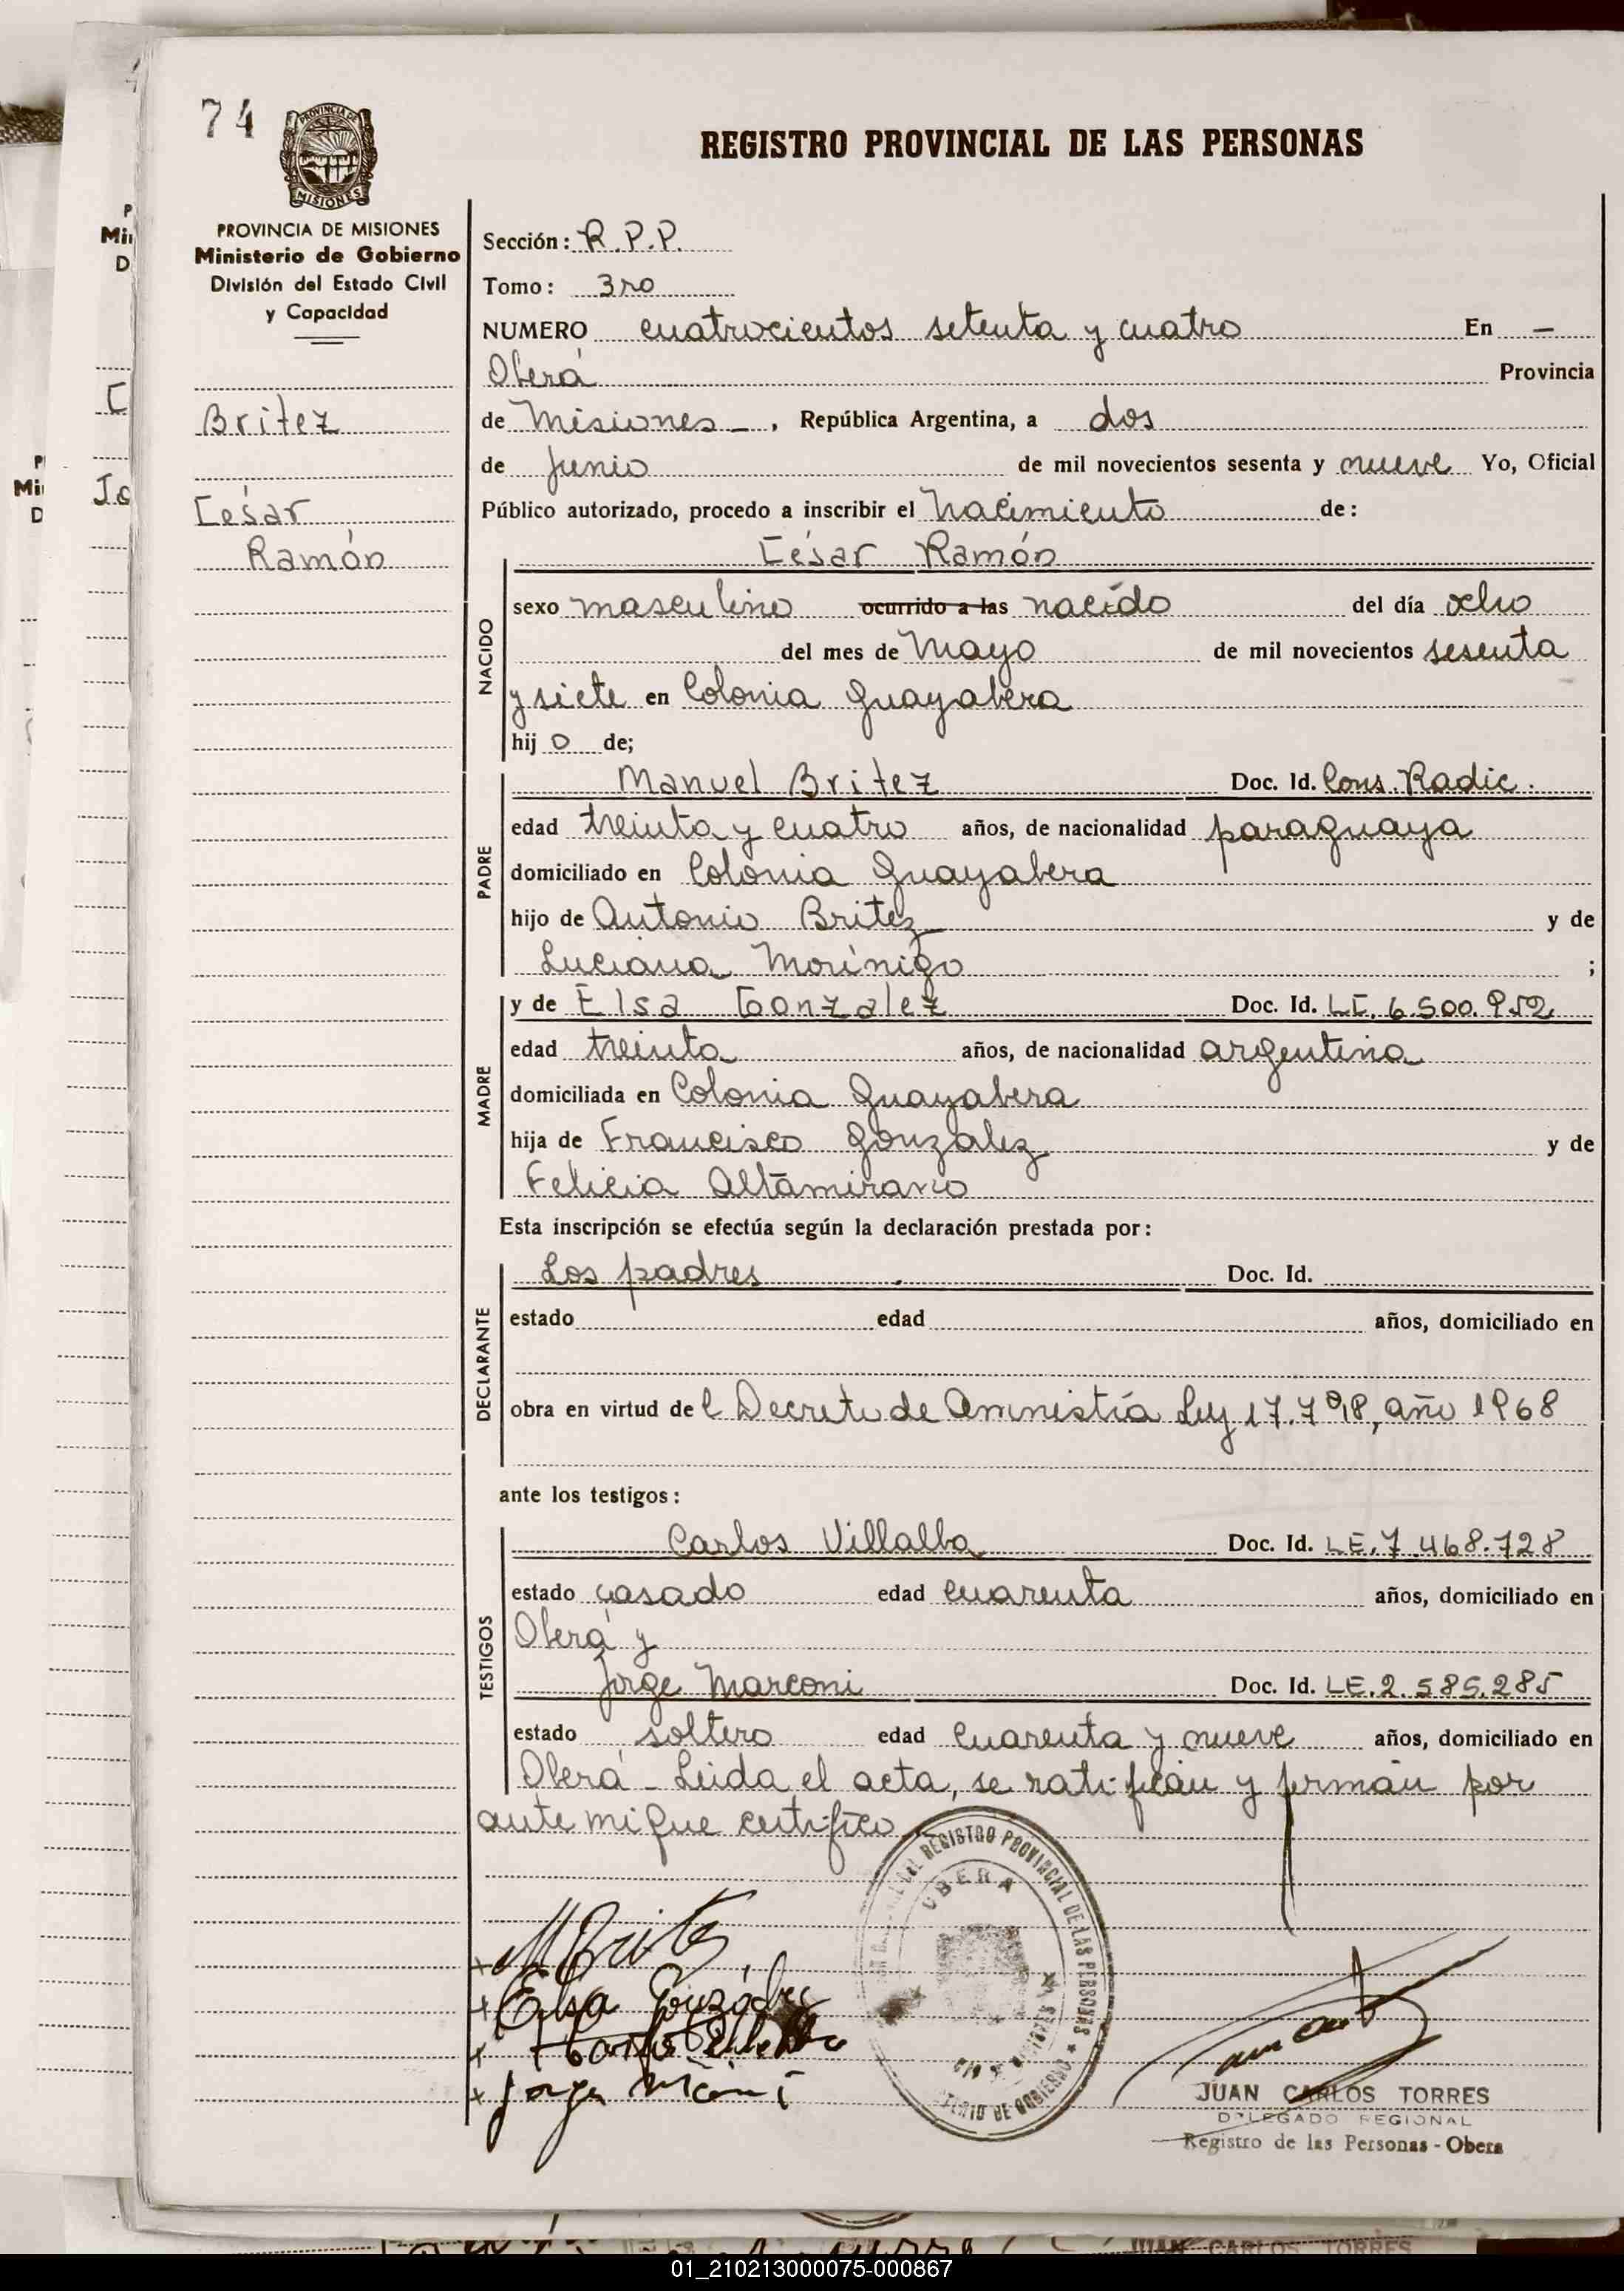 74
PROVINCIA DE
MISIONES
REGISTRO PROVINCIAL DE LAS PERSONAS
PROVINCIA DE MISIONES
Ministerio de Gobierno
División del Estado Civil
y Capacidad
Britez
César
Ramón
Sección: R.P.P.
Tomo: 3ro
NUMERO cuatrocientos setenta y cuatro En —
Oberá Provincia
de Misiones —, República Argentina, a dos
de Junio de mil novecientos sesenta y nueve Yo, Oficial
Público autorizado, procedo a inscribir el Nacimiento de:
César Ramón
NACIDO
sexo masculino ocurrido a las nacido del día ocho
del mes de Mayo de mil novecientos sesenta
y siete en Colonia Guayabera
hijo de;
PADRE
Manuel Britez Doc. Id. Cons. Radic.
edad treinta y cuatro años, de nacionalidad paraguaya
domiciliado en Colonia Guayabera
hijo de Antonio Britez y de
Luciana Morínigo ;
MADRE
y de Elsa Gonzalez Doc. Id. LC. 6.500.952
edad treinta años, de nacionalidad argentina
domiciliada en Colonia Guayabera
hija de Francisco González y de
Felicia Altamirano
Esta inscripción se efectúa según la declaración prestada por:
DECLARANTE
Los padres Doc. Id.
estado edad años, domiciliado en
obra en virtud del Decreto de Amnistía Ley año 1968
ante los testigos:
TESTIGOS
Carlos Villalba Doc. Id. LE. 7.468.728
estado casado edad cuarenta años, domiciliado en
Oberá y
Jorge Marconi Doc. Id. LE. 2.585.285
estado soltero edad cuarenta y nueve años, domiciliado en
Oberá - Leida el acta, se ratifican y firman por
ante mi que certifico
REGISTRO PROVINCIAL DE LAS PERSONAS
OBERA
DE GOBIERNO
M Britez
Elsa González
Jorge
JUAN CARLOS TORRES
DELEGADO REGIONAL
Registro de las Personas - Obera
JUAN CARLOS TORRES
01_210213000075-000867